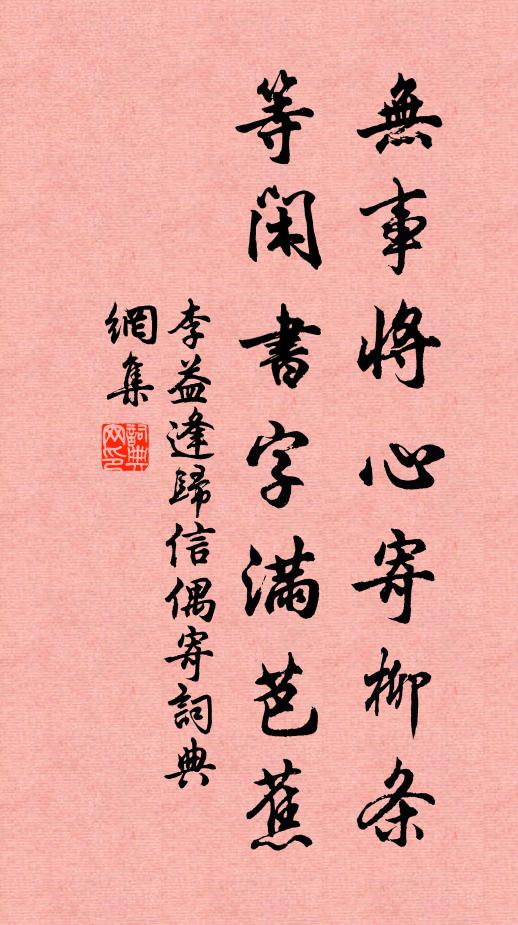 無事将心寄柳条
等閑書字滿芭蕉
李益逢歸信偶寄詞典
網集
詞典網印